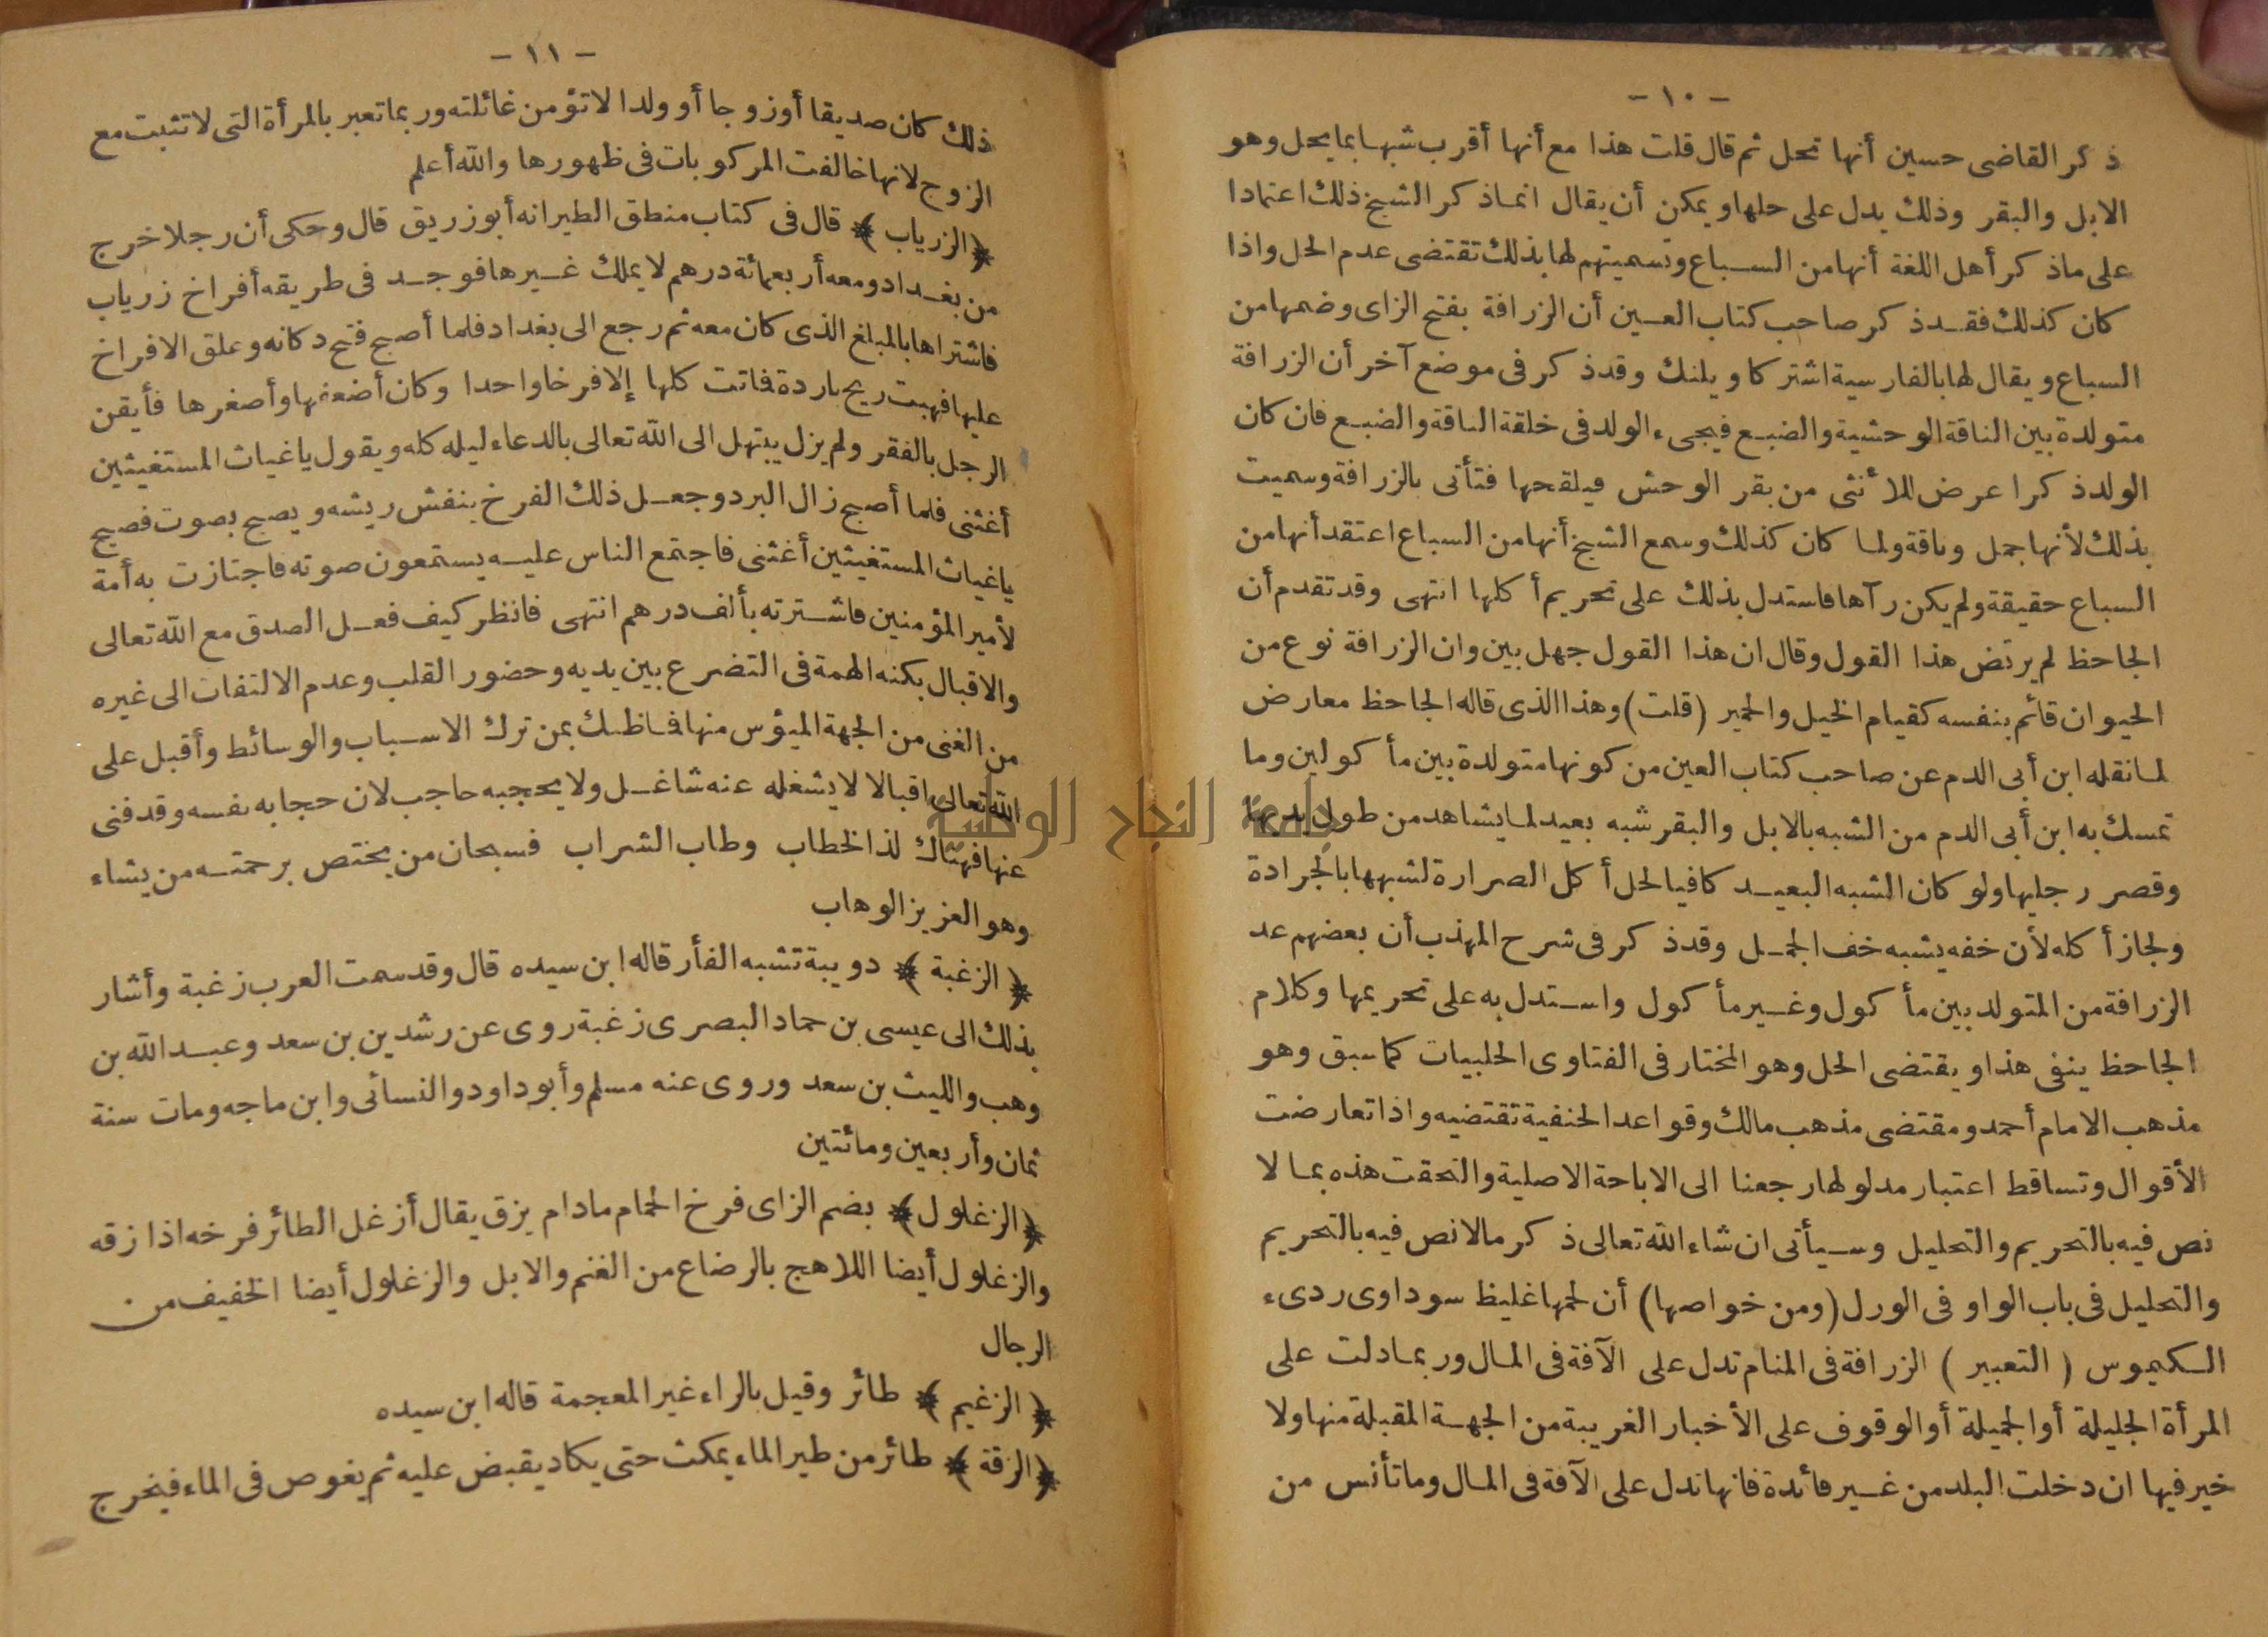 - ١٠ -
ذكر القاضى حسين أنها تحل ثم قال قلت هذا مع أنها أقرب شبها بما يحل وهو
الابل والبقر وذلك يدل على حلها ويمكن أن يقال انما ذكر الشيخ ذلك اعتمادا
على ماذكر أهل اللغة أنها من السباع وتسميتهم لها بذلك تقتضى عدم الحل واذا
كان كذلك فقد ذكر صاحب كتاب العين أن الزرافة بفتح الزاى وضمها من
السباع ويقال لها بالفارسية اشتركا ويلنك وقد ذكر فى موضع آخر أن الزرافة
متولدة بين الناقة الوحشية والضبع فيجىء الولد فى خلقة الناقة والضبع فان كان
الولد ذكرا عرض للأنثى من بقر الوحش فيلقحها فتأتى بالزرافة وسميت
بذلك لأنها جمل وناقة ولما كان كذلك وسمع الشيخ أنها من السباع اعتقد أنها من
السباع حقيقة ولم يكن رآها فاستدل بذلك على تحريم أكلها انتهى وقد تقدم أن
الجاحظ لم يرتض هذا القول وقال ان هذا القول جهل بين وان الزرافة نوع من
الحيوان قائم بنفسه كقيام الخيل والحمير (قلت) وهذا الذى قاله الجاحظ معارض
لما نقله ابن أبى الدم عن صاحب كتاب العين من كونها متولدة بين مأكولين وما
تمسك به ابن أبى الدم من الشبه بالابل والبقر شبه بعيد لما يشاهد من طول يديها
وقصر رجليها ولو كان الشبه البعيد كافيا لحل أكل الصرارة لشبهها بالجرادة
ولجاز أكله لأن خفه يشبه خف الجمل وقد ذكر فى شرح المهذب أن بعضهم عد
الزرافة من المتولد بين مأكول وغير مأكول واستدل به على تحريمها وكلام
الجاحظ ينفى هذا ويقتضى الحل وهو المختار فى الفتاوى الحلبيات كما سبق وهو
مذهب الامام أحمد ومقتضى مذهب مالك وقواعد الحنفية تقتضيه واذا تعارضت
الأقوال وتساقط اعتبار مدلولها رجعنا الى الاباحة الاصلية والتحقت هذه بما لا
نص فيه بالتحريم والتحليل وسيأتى ان شاء الله تعالى ذكر مالا نص فيه بالتحريم
والتحليل فى باب الواو فى الورل (ومن خواصها) أن لحمها غليظ سوداوى ردىء
الكيموس (التعبير) الزرافة فى المنام تدل على الآفة فى المال وربما دلت على
المرأة الجليلة أو الجميلة أو الوقوف على الأخبار الغريبة من الجهة المقبلة منها ولا
خير فيها ان دخلت البلد من غير فائدة فانها تدل على الآفة فى المال وما تأنس من
- ١١ -
ذلك كان صديقا أو زوجا أو ولدا لا تؤمن غائلته وربما تعبر بالمرأة التى لا تثبت مع
الزوج لانها خالفت المركوبات فى ظهورها والله أعلم
﴿الزرياب﴾ قال فى كتاب منطق الطير انه أبو زريق قال وحكى أن رجلا خرج
من بغداد ومعه أربعمائة درهم لا يملك غيرها فوجد فى طريقه أفراخ زرياب
فاشتراها بالمبلغ الذى كان معه ثم رجع الى بغداد فلما أصبح فتح دكانه وعلق الافراخ
عليها فهبت ريح باردة فماتت كلها إلا فرخا واحدا وكان أضعفها وأصغرها فأيقن
الرجل بالفقر ولم يزل يبتهل الى الله تعالى بالدعاء ليله كله ويقول ياغياث المستغيثين
أغثنى فلما أصبح زال البرد وجعل ذلك الفرخ ينفش ريشه ويصيح بصوت فصيح
ياغياث المستغيثين أغثنى فاجتمع الناس عليه يستمعون صوته فاجتازت به أمة
لأمير المؤمنين فاشترته بألف درهم انتهى فانظر كيف فعل الصدق مع الله تعالى
والاقبال بكنه الهمة فى التضرع بين يديه وحضور القلب وعدم الالتفات الى غيره
من الغنى من الجهة الميؤس منها فما ظنك بمن ترك الاسباب والوسائط وأقبل على
الله تعالى اقبالا لا يشغله عنه شاغل ولا يحجبه حاجب لان حجابه نفسه وقد فنى
عنها فهناك لذ الخطاب وطاب الشراب فسبحان من يختص برحمته من يشاء
وهو العزيز الوهاب
﴿الزغبة﴾ دويبة تشبه الفأر قاله ابن سيده قال وقد سمت العرب زغبة وأشار
بذلك الى عيسى بن حماد البصرى زغبة روى عن رشدين بن سعد وعبد الله بن
وهب والليث بن سعد وروى عنه مسلم وأبو داود والنسائى وابن ماجه ومات سنة
ثمان وأربعين ومائتين
﴿الزغلول﴾ بضم الزاى فرخ الحمام مادام يزق يقال أزغل الطائر فرخه اذا زقه
والزغلول أيضا اللاهج بالرضاع من الغنم والابل والزغلول أيضا الخفيف من
الرجال
﴿الزغيم﴾ طائر وقيل بالراء غير المعجمة قاله ابن سيده
﴿الزقة﴾ طائر من طير الماء يمكث حتى يكاد يقبض عليه ثم يغوص فى الماء فيخرج
جامعة النجاح الوطنية